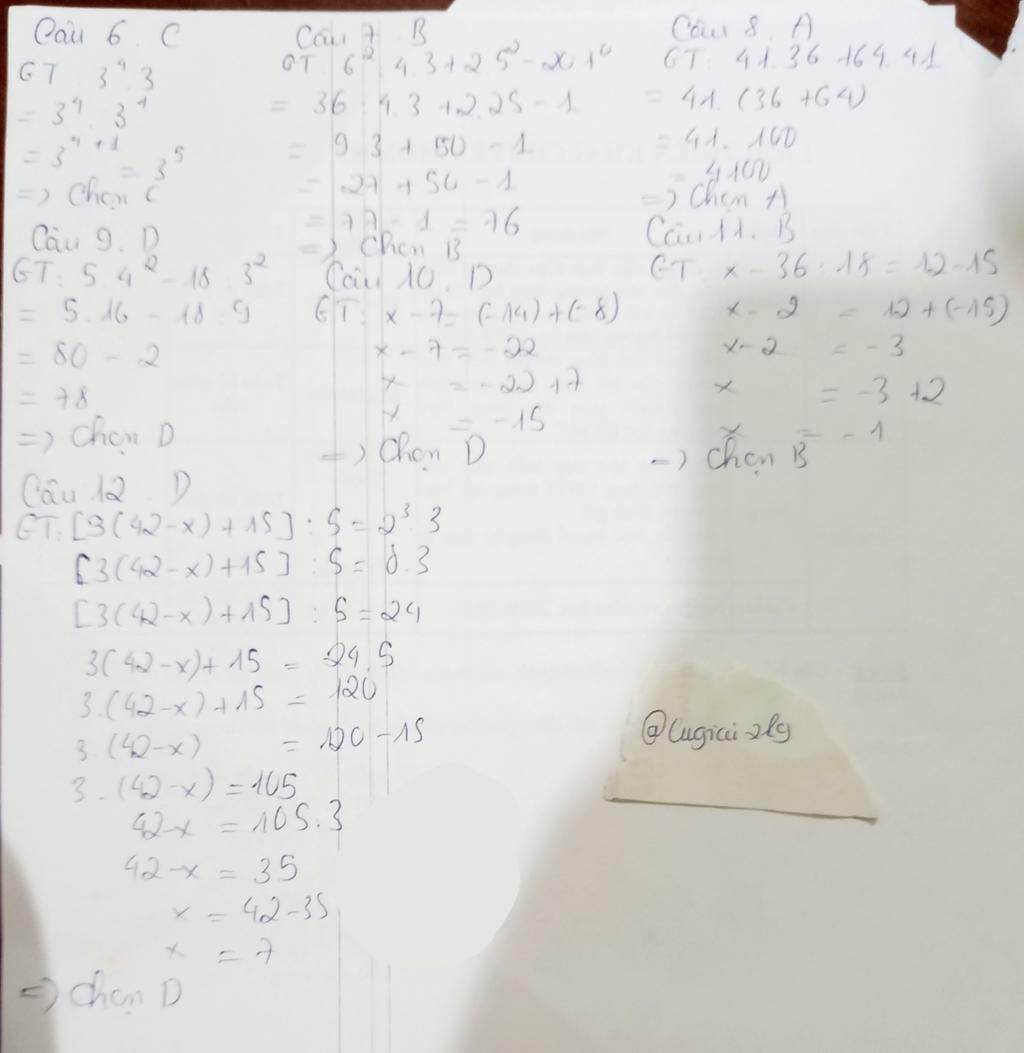 Câu 6. C
GT: 3⁴.3
= 3⁴. 3¹
= 3⁴⁺¹ = 3⁵
=) Chọn C
Câu 7. B
GT: 6² : 4.3 + 2.5² - 2010
= 36 : 4.3 + 2.25 - 1
= 9.3 + 50 - 1
= 27 + 50 - 1
= 77 - 1 = 76
=) Chọn B
Câu 8. A
GT: 41.36 + 64.41
= 41. (36 + 64)
= 41. 100
= 4100
=) Chọn A
Câu 9. D
GT: 5.4² - 18 : 3²
= 5.16 - 18 : 9
= 80 - 2
= 78
=) Chọn D
Câu 10. D
GT: x - 7 = (-14) + (-8)
x - 7 = -22
x = -22 + 7
x = -15
=) Chọn D
Câu 11. B
GT: x - 36 : 18 = 12 - 15
x - 2 = 12 + (-15)
x - 2 = -3
x = -3 + 2
x = -1
=) Chọn B
Câu 12. D
GT: [3(42-x) + 15] : 5 = 2³.3
[3(42-x) + 15] : 5 = 8.3
[3(42-x) + 15] : 5 = 24
3(42-x) + 15 = 24.5
3.(42-x) + 15 = 120
3.(42-x) = 120 - 15
3.(42-x) = 105
42-x = 105:3
42-x = 35
x = 42-35
x = 7
=) Chọn D